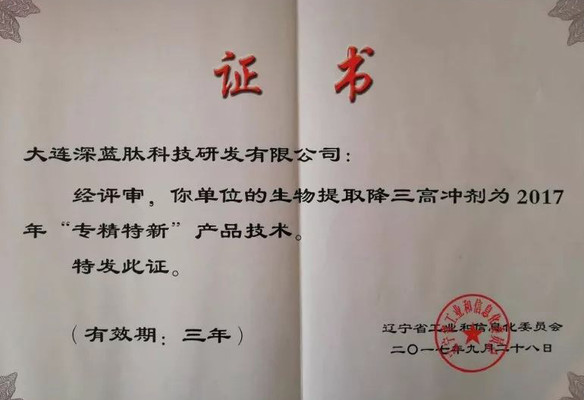 证书
大连深蓝肽科技研发有限公司：
经评审，你单位的生物提取降三高冲剂为2017
年“专精特新”产品技术。
特发此证。
（有效期：三年）
辽宁省工业和信息化委员会
二〇一七年九月二十八日